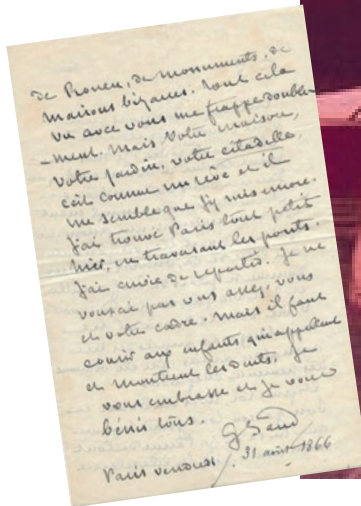 de Rouen, de monuments, de
maisons bizarres. Tout cela
vu avec vous me frappe double-
-ment. Mais votre maison,
votre jardin, votre citadelle,
c'est comme un rêve et il
me semble que j'y suis encore.
J'ai trouvé Paris tout petit
hier, en traversant les ponts.
J'ai envie de repartir. Je ne
vous ai pas vus assez, vous
et votre cadre. Mais il faut
courir aux enfants qui appellent
et montrent les dents. Je
vous embrasse et je vous
bénis tous.
G Sand
Paris vendredi 31 août 1866